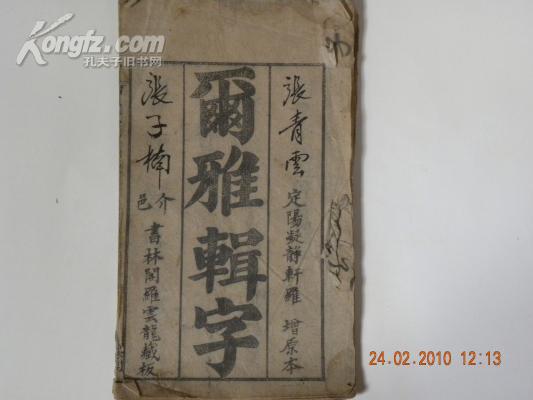 Kongfz.com
孔夫子旧书网
張青雲
定陽凝静軒羅 增原本
爾雅輯字
張子楠
介邑 書林閣羅雲龍藏板
24.02.2010 12:13